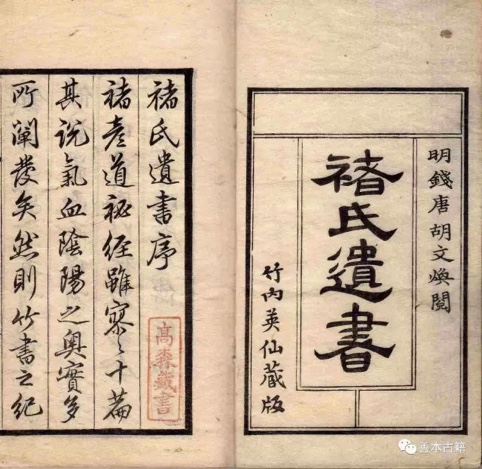 明錢唐胡文煥閱
褚氏遺書
竹內英仙藏版
褚氏遺書序
褚彥道秘經雖寥〻十篇
其說氣血陰陽之奧實多
所闡發矣然則竹書之紀
高森藏書
善本古籍